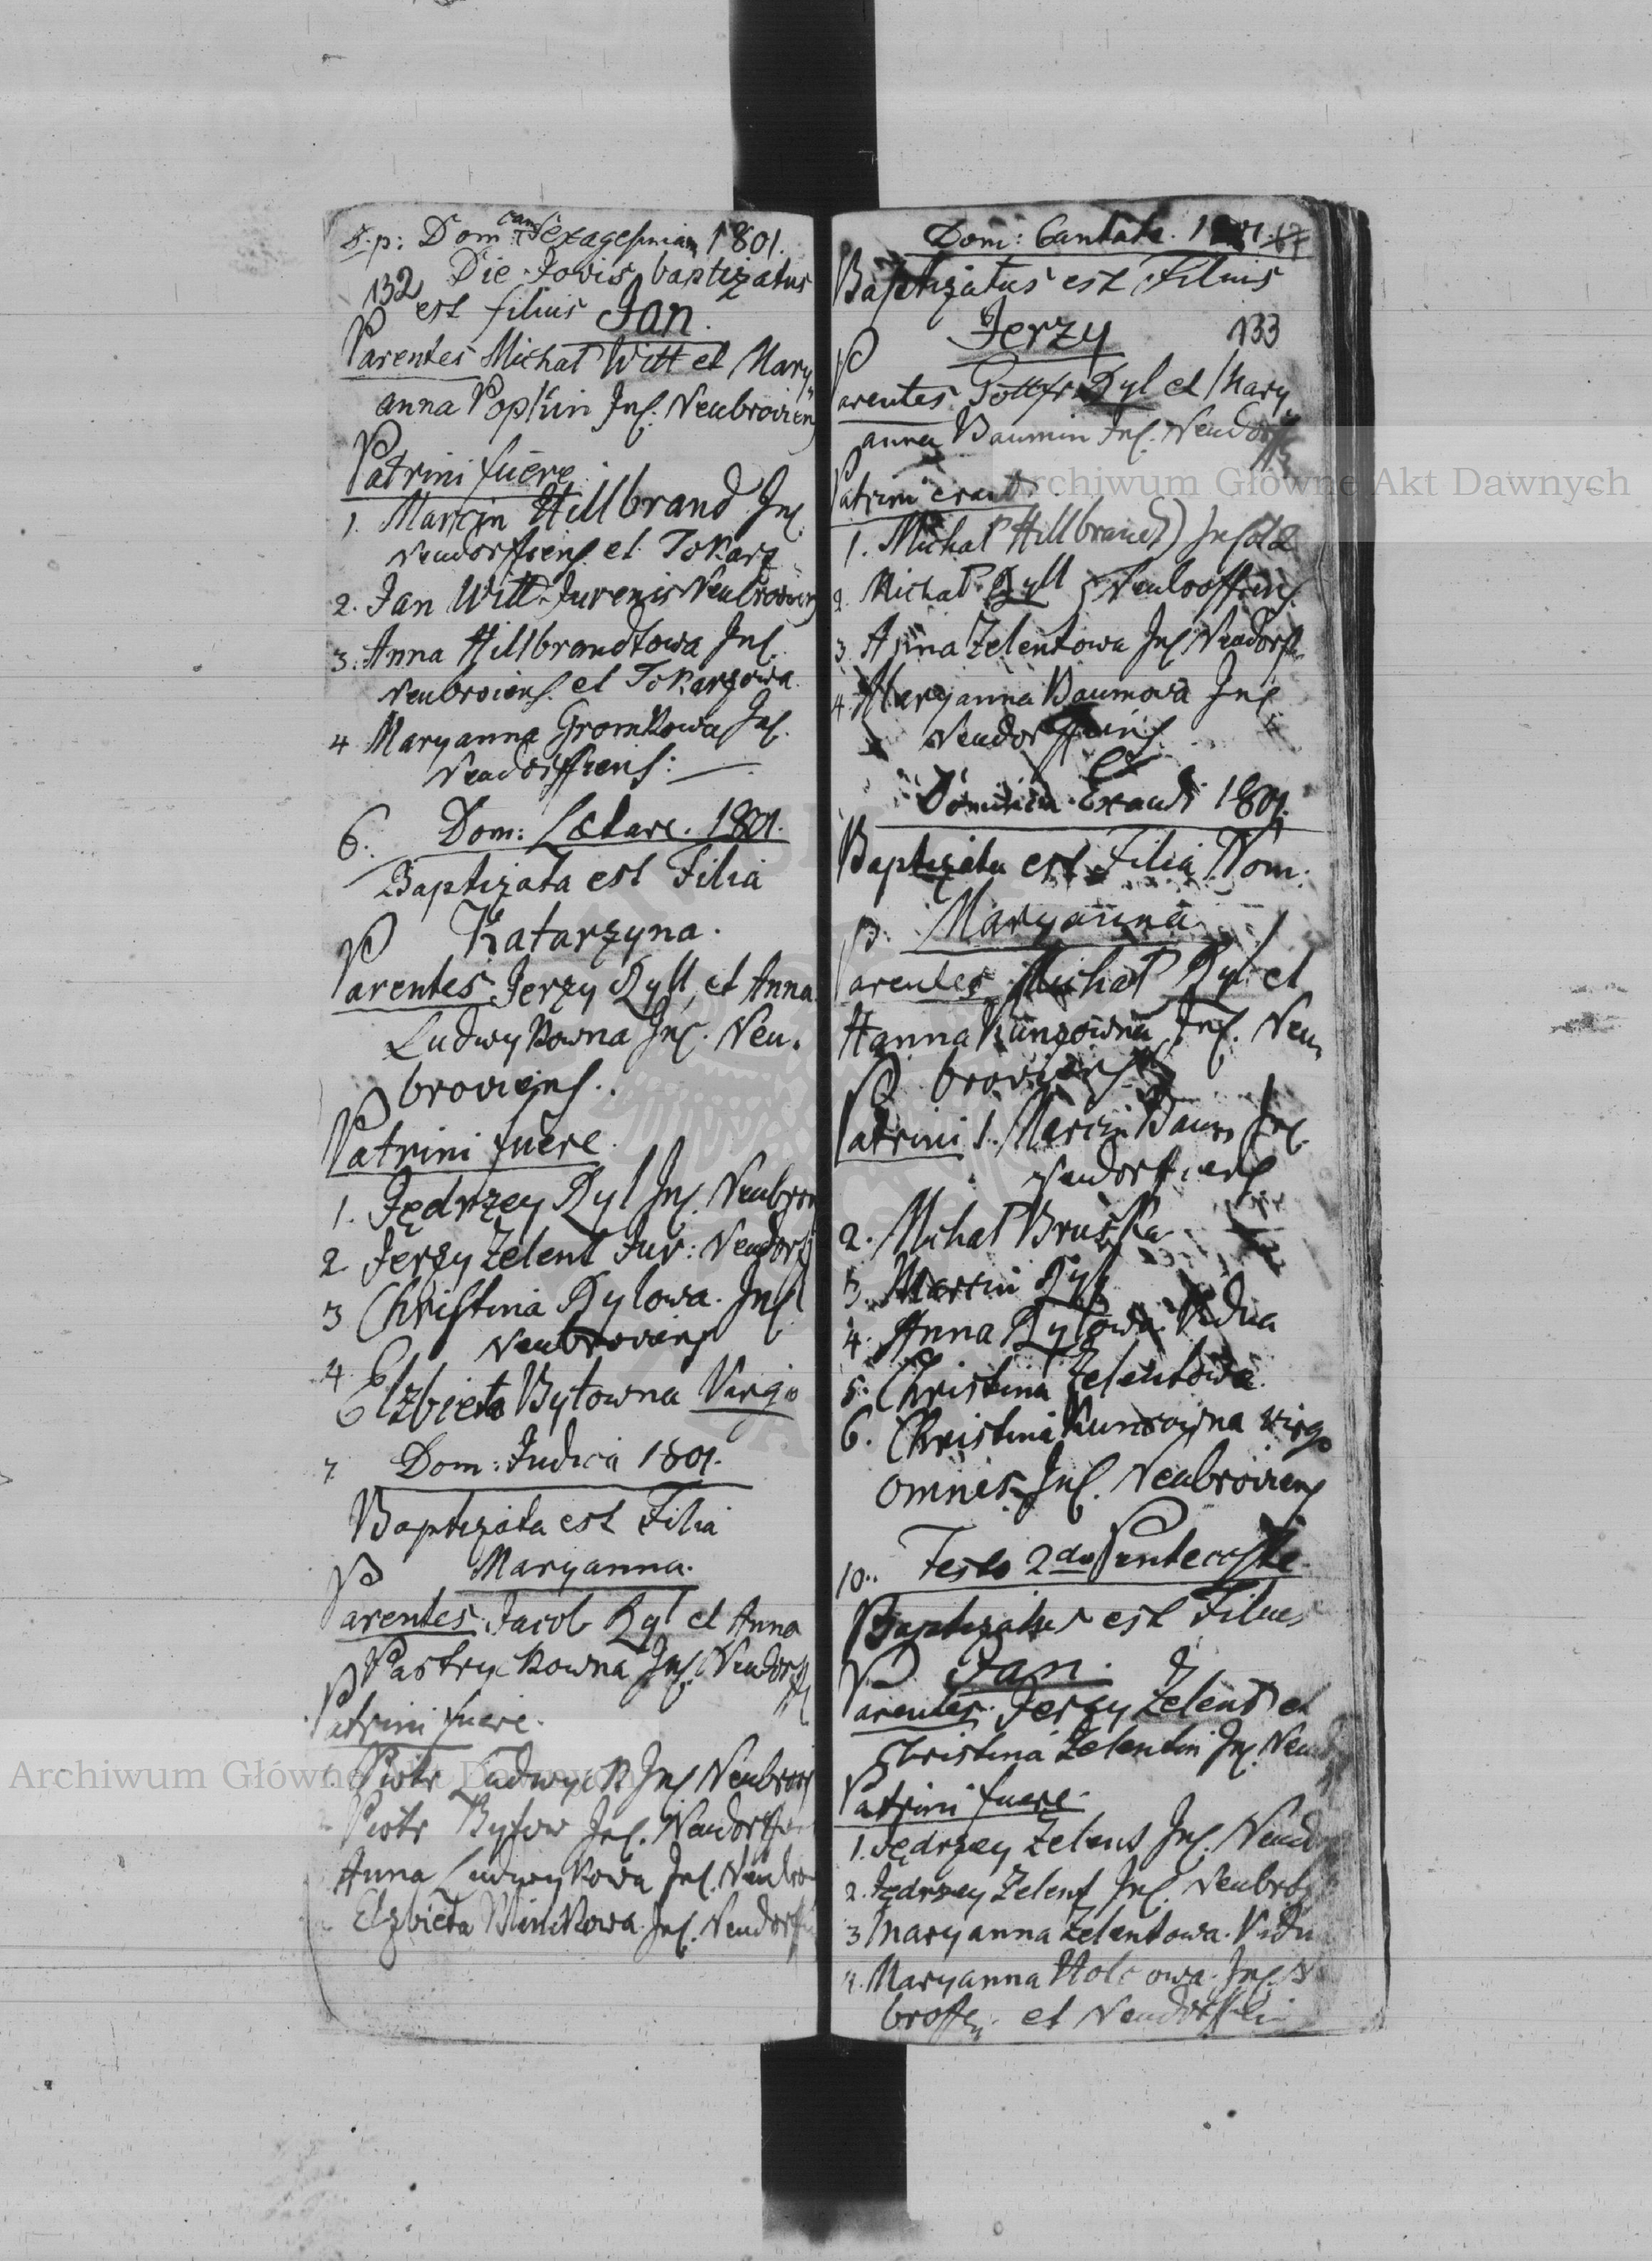 D. p: Dom cam Sexagesimam 1801.
132 Die Jovis baptizatus
est filius Jan.
Parentes Michał Witt et Mary
anna Popłin Inf. Neubrovien
Patrini fuere
1. Marcin Hillbrand Inf
Neudorffiens. et Tokarz
2. Jan Witt Juvenis Neubrovien
3. Anna Hillbrandtowa Inf.
Neubroviens. et Tokarzowa.
4 Maryanna Gromkowa Inf.
Neudorffiens: —
6. Dom: Lætare. 1801.
Baptizata est Filia
Katarzyna.
Parentes Jerzy Ryll, et Anna
Ludwykowna Inf. Neu.
broviens.
Patrini fuere.
1. Jędrzey Ryl Inf. Neubrov
2 Jerzy Zelent Juv: Neudorf
3 Christina Rylowa. Inf
Neubroviens
4 Elzbieta Bytowna Virgo
7 Dom: Judica 1801.
Baptizata est Filia
Maryanna.
Parentes. Jacob Ryl et Anna
Pastryckowna Inf. Neudorff
Patrini fuere.
1. Piotr Ludwyck Inf Neubrov
Piotr Bytow Inf. Neudorffien
Anna Ludwykowa Inf. Neubro
Elzbieta Winikowa. Inf. Neudorff
Dom: Cantate. 1801. 67
Baptizatus est Filius
Jerzy 133
Parentes Gottfr Ryl et Mary
anna Baumin Inf. Neudorff
Patrini erant.
1. Michał Hillbrandt) Inf
2. Michał Ryll
3 Anna Zelentowa Inf Neudorf
4. Maryanna Baumowa Inf
Neudorffiens
Dominica Exaudi 1801.
Baptizata est Filia Nom.
Maryanna
Parentes Michał Ryl et
Hanna Kunzowna, Inf. Neu
broviens
Patrini 1. Marcin Baum Inf.
Neudorffiens
2. Michał Bruszka
3. Marcin Ryl
4. Anna Rylowa Vidua
5. Christina Zelentowa.
6. Christina Kunzowna virgo
omnes Inf. Neubroviens
10. Festo 2do Pentecoste.
Baptizatus est Filius
Jan.
Parentes. Jerzy Zelent et
Christina Zelentin Inf. Neud
Patrini fuere.
1. Jędrzey Zelent Inf. Neud
2. Jędrzey Zelent Inf. Neubro
3 Maryanna Zelentowa. Vidu
4. Maryanna Holcowa. Inf. N
broffen. et Neudorff
Archiwum Główne Akt Dawnych
Archiwum Główne Akt Dawnych